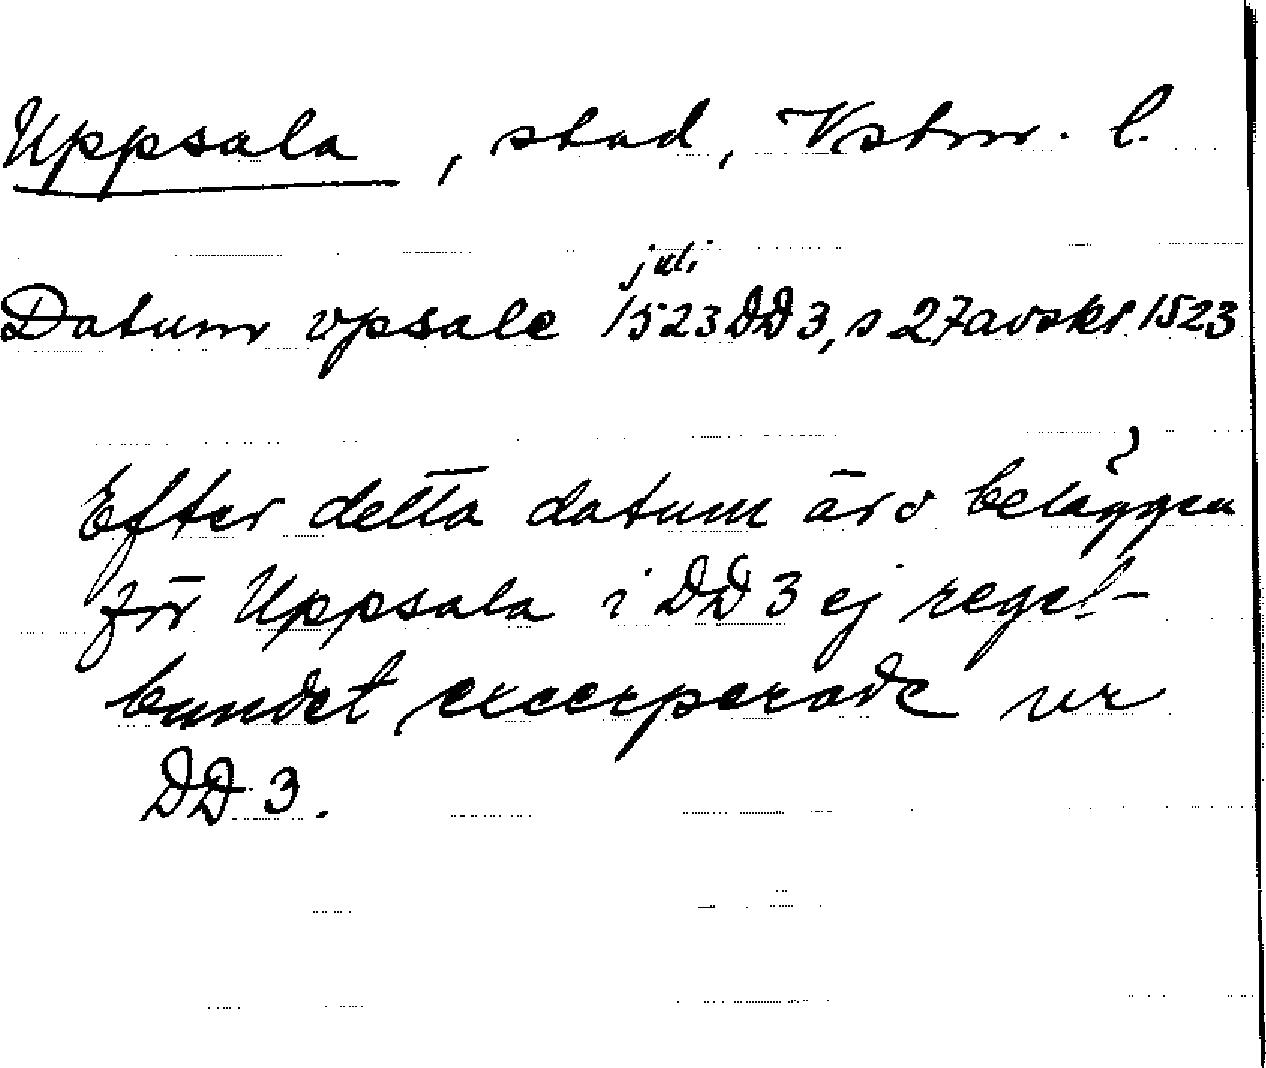 Uppsala, stad, Vstm. l.
juli
Datum vpsale 1523 DD 3, s 27 avskr 1523
Efter detta datum äro beläggen
för Uppsala i DD 3 ej regel-
bundet excerperade ur
DD 3.